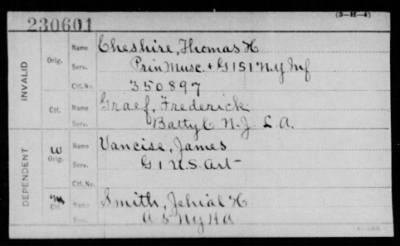 (3-H-4)
230601
INVALID
Orig.
Name Cheshire, Thomas H
Serv. Prin Musc. + G 151 N.Y Inf
Ctf. No. 350897
Ctf.
Name Graef, Frederick
Serv. Batty C N.J. L A.
DEPENDENT
W
Orig.
Name Vancise, James
Serv. G 1 U.S. Art
Ctf. No.
Ctf.
Name Smith, Jehial H
Serv. A 5 Ny HA